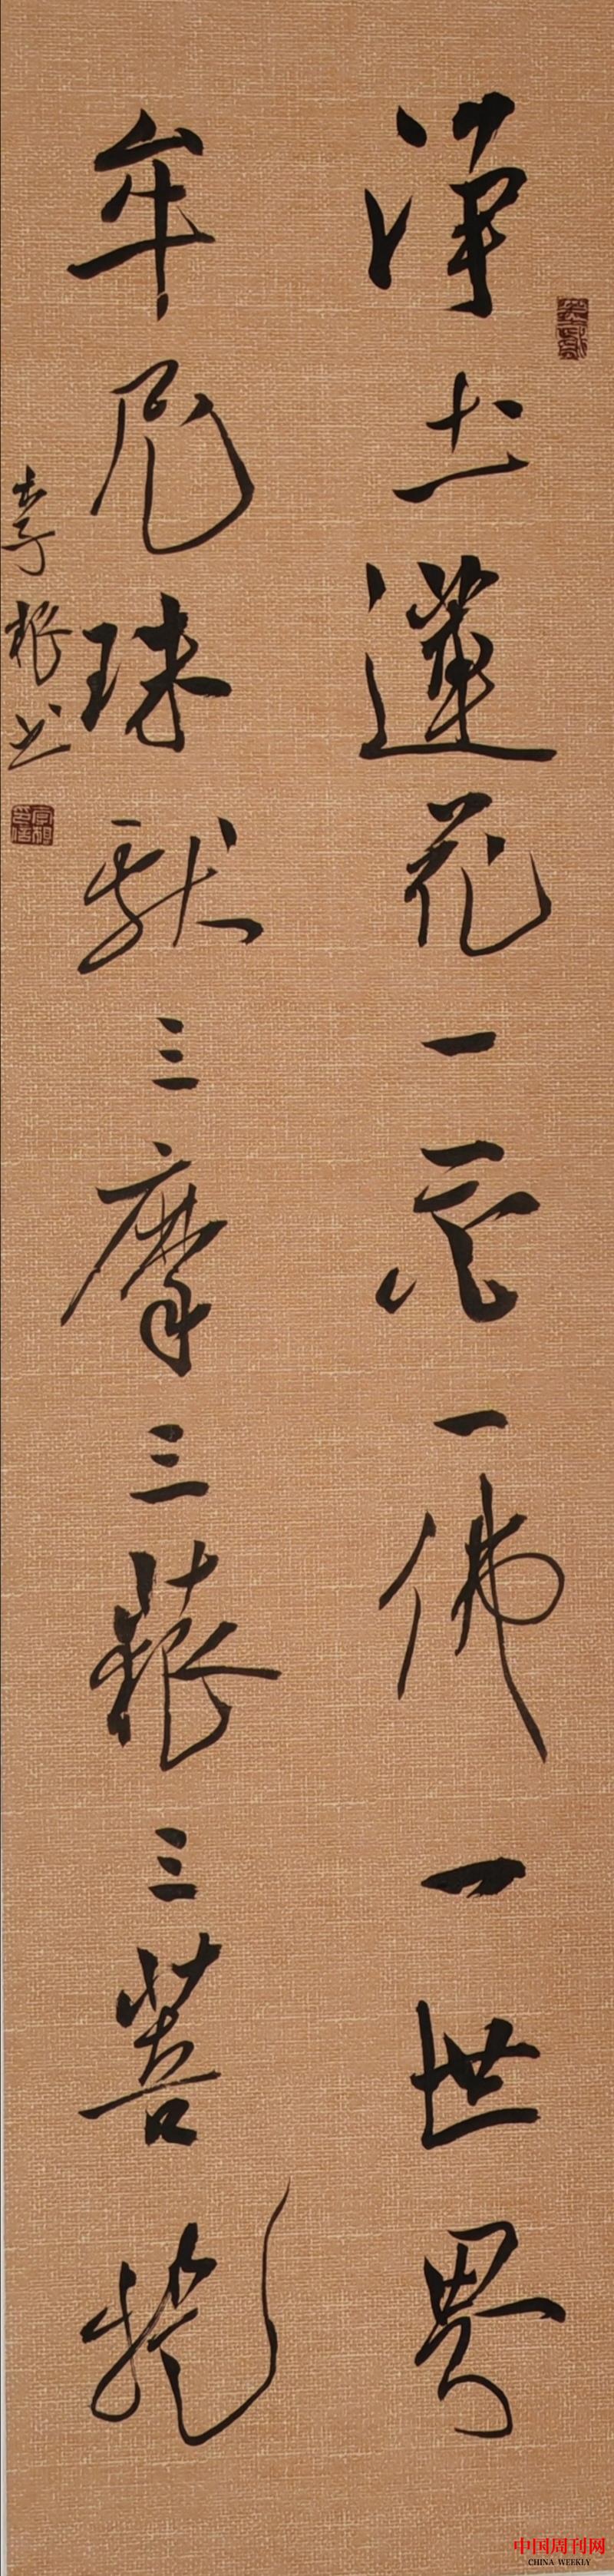 淨土蓮花一花一佛一世界
牟尼珠獻三摩三藐三菩提
李 书
中国周刊网
CHINA WEEKLY